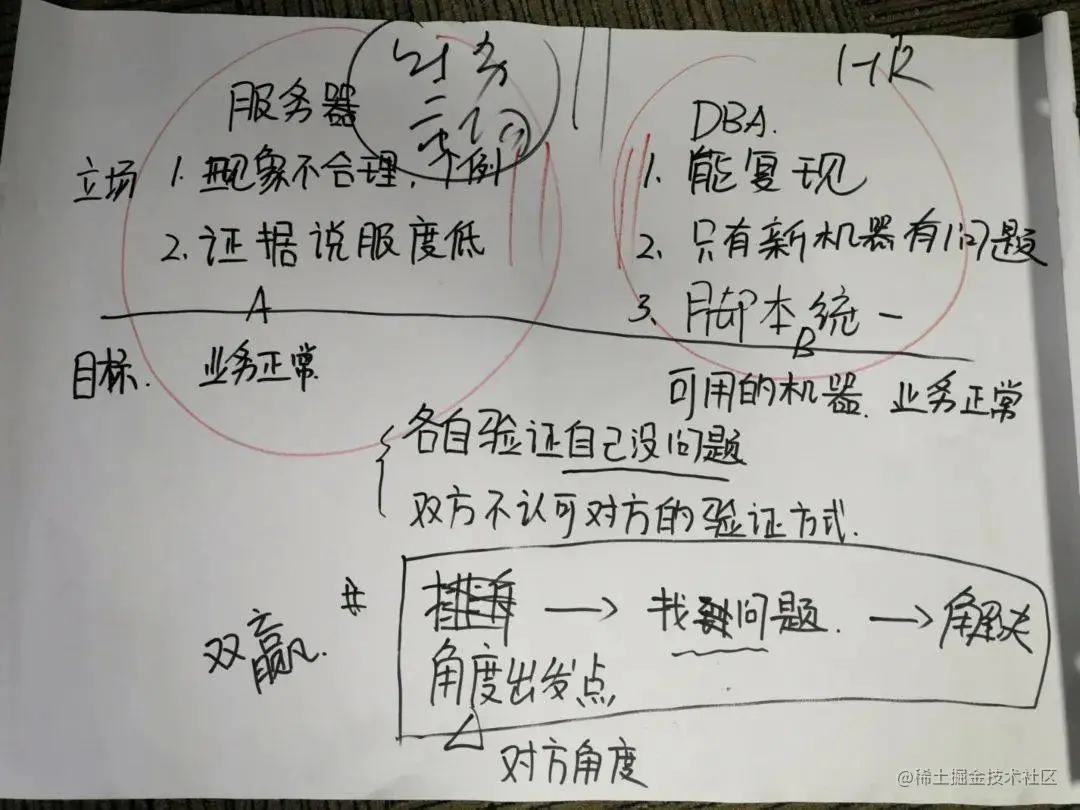 HR
服务器
DBA.
立场
1. 现象不合理,个例
2. 证据说服度低
1. 能复现
2. 只有新机器有问题
3. 脚本统一
A
B
目标.
业务正常
可用的机器. 业务正常
各自验证自己没问题
双方不认可对方的验证方式.
双赢.
#
→ 找到问题. → 解决
角度出发点
对方角度
@稀土掘金技术社区